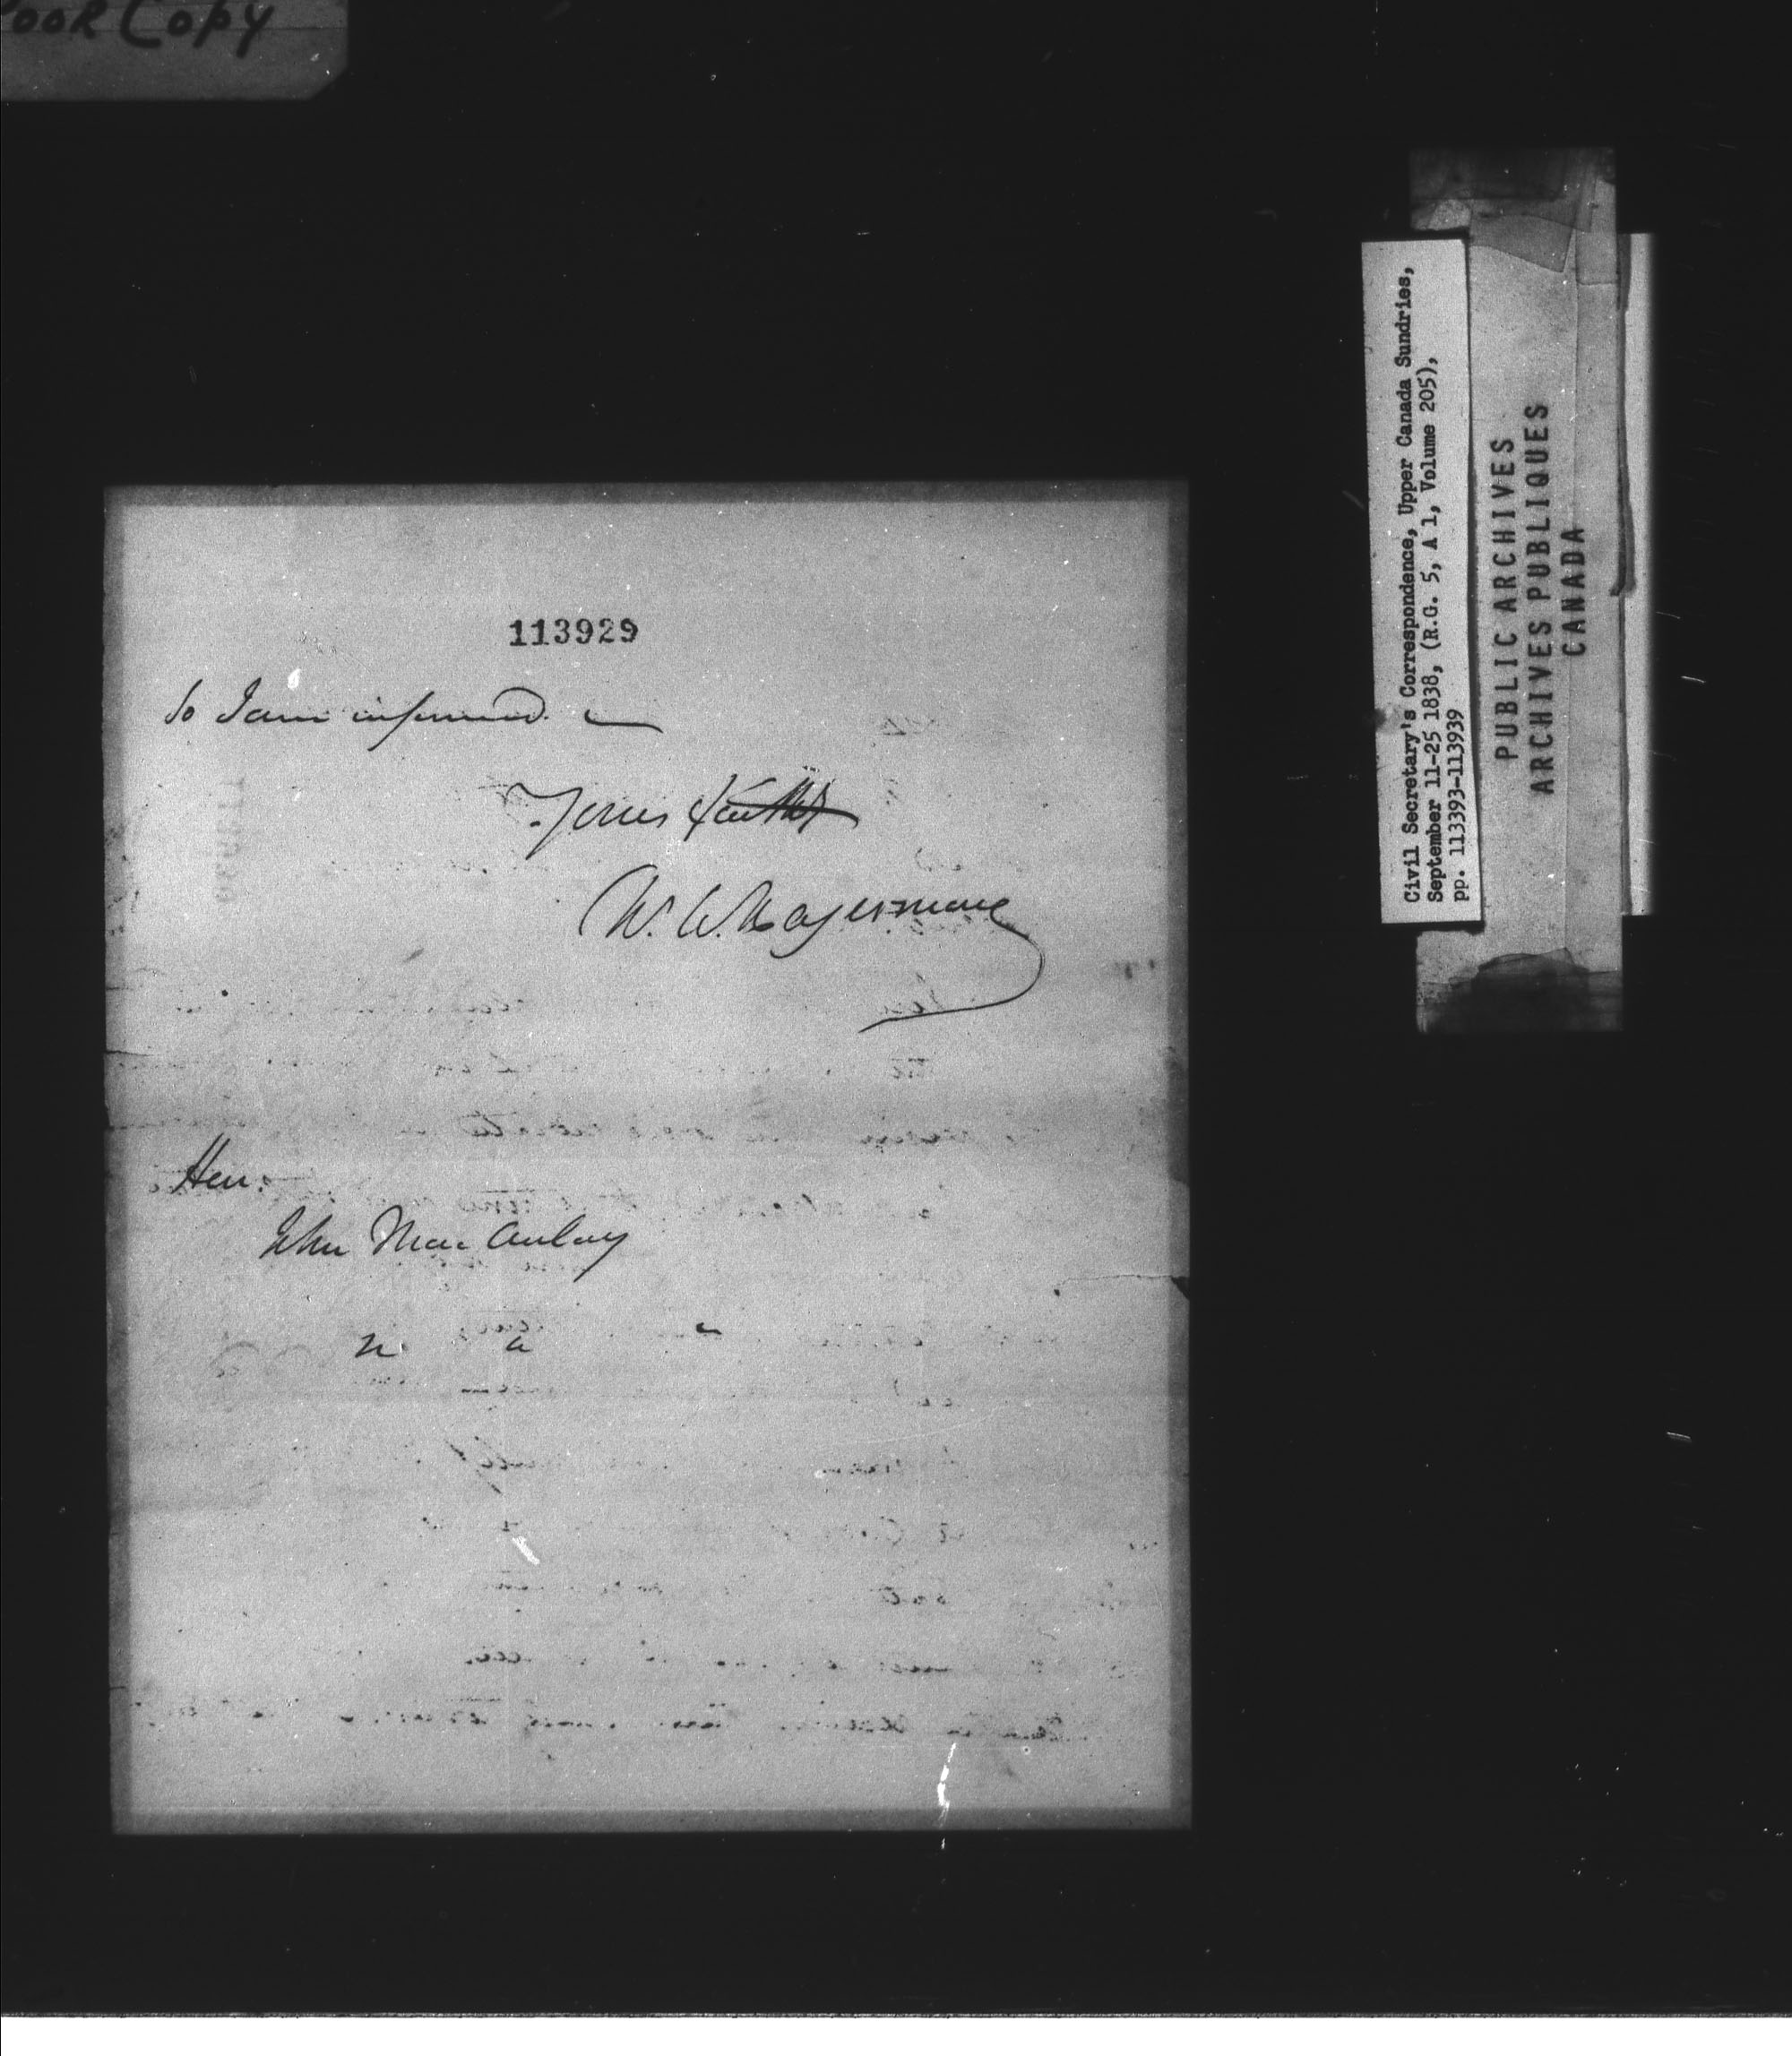 Poor Copy
113929
so I am informed. —
Yours faithf
W. W. Hagerman
Hon:
John MacAulay
Civil Secretary's Correspondence, Upper Canada Sundries,
September 11-25 1838, (R.G. 5, A 1, Volume 205),
pp. 113393-113939
PUBLIC ARCHIVES
ARCHIVES PUBLIQUES
CANADA